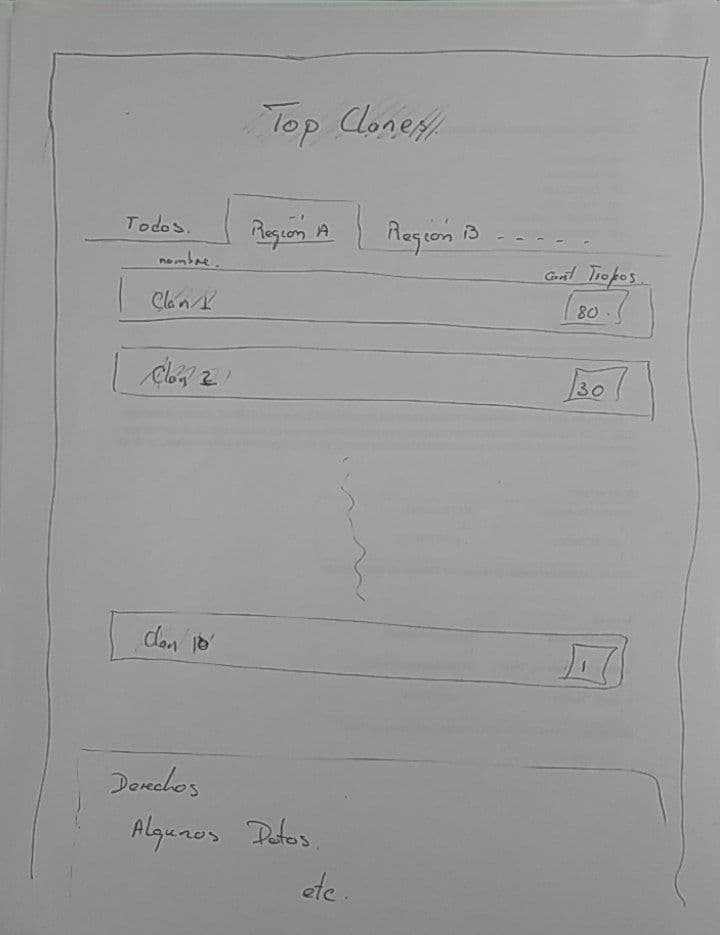 Top Clanes
Todos. Región A Región B - - - - -
nombre. Cant Trofeos.
Clan 1 80.
Clan 2 30
Clan 10 1
Derechos
Algunos Datos.
etc.